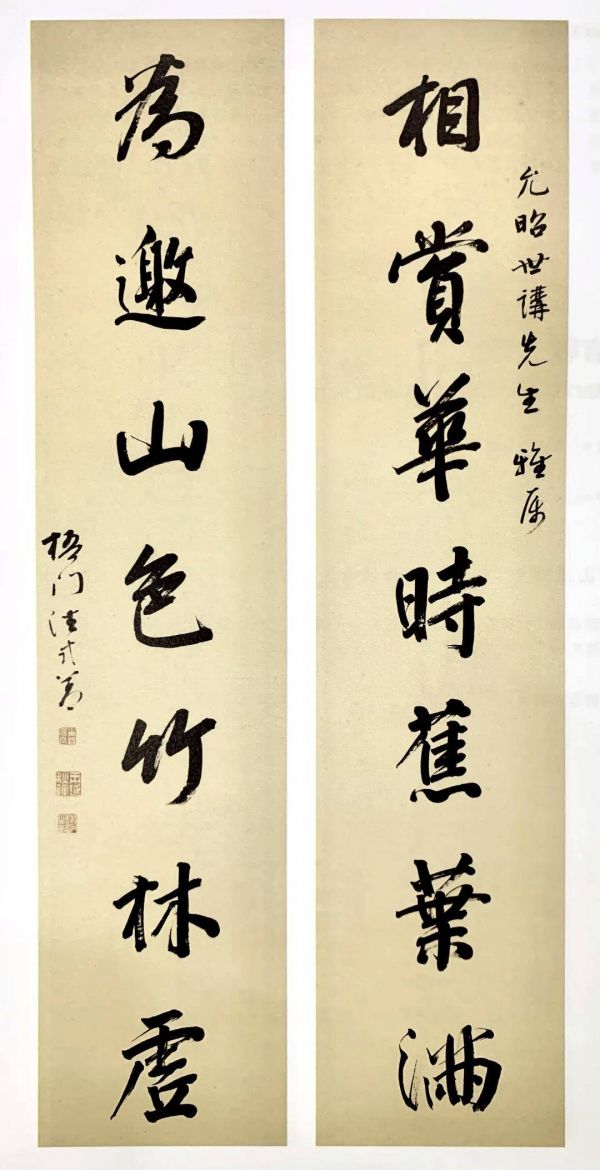 允昭世講先生 雅属
相賞華時蕉葉滿
為邀山色竹林虚
梧門法式善